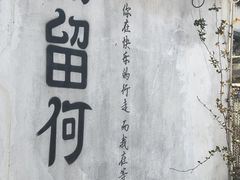 留何
你在快乐的行走 而我在等